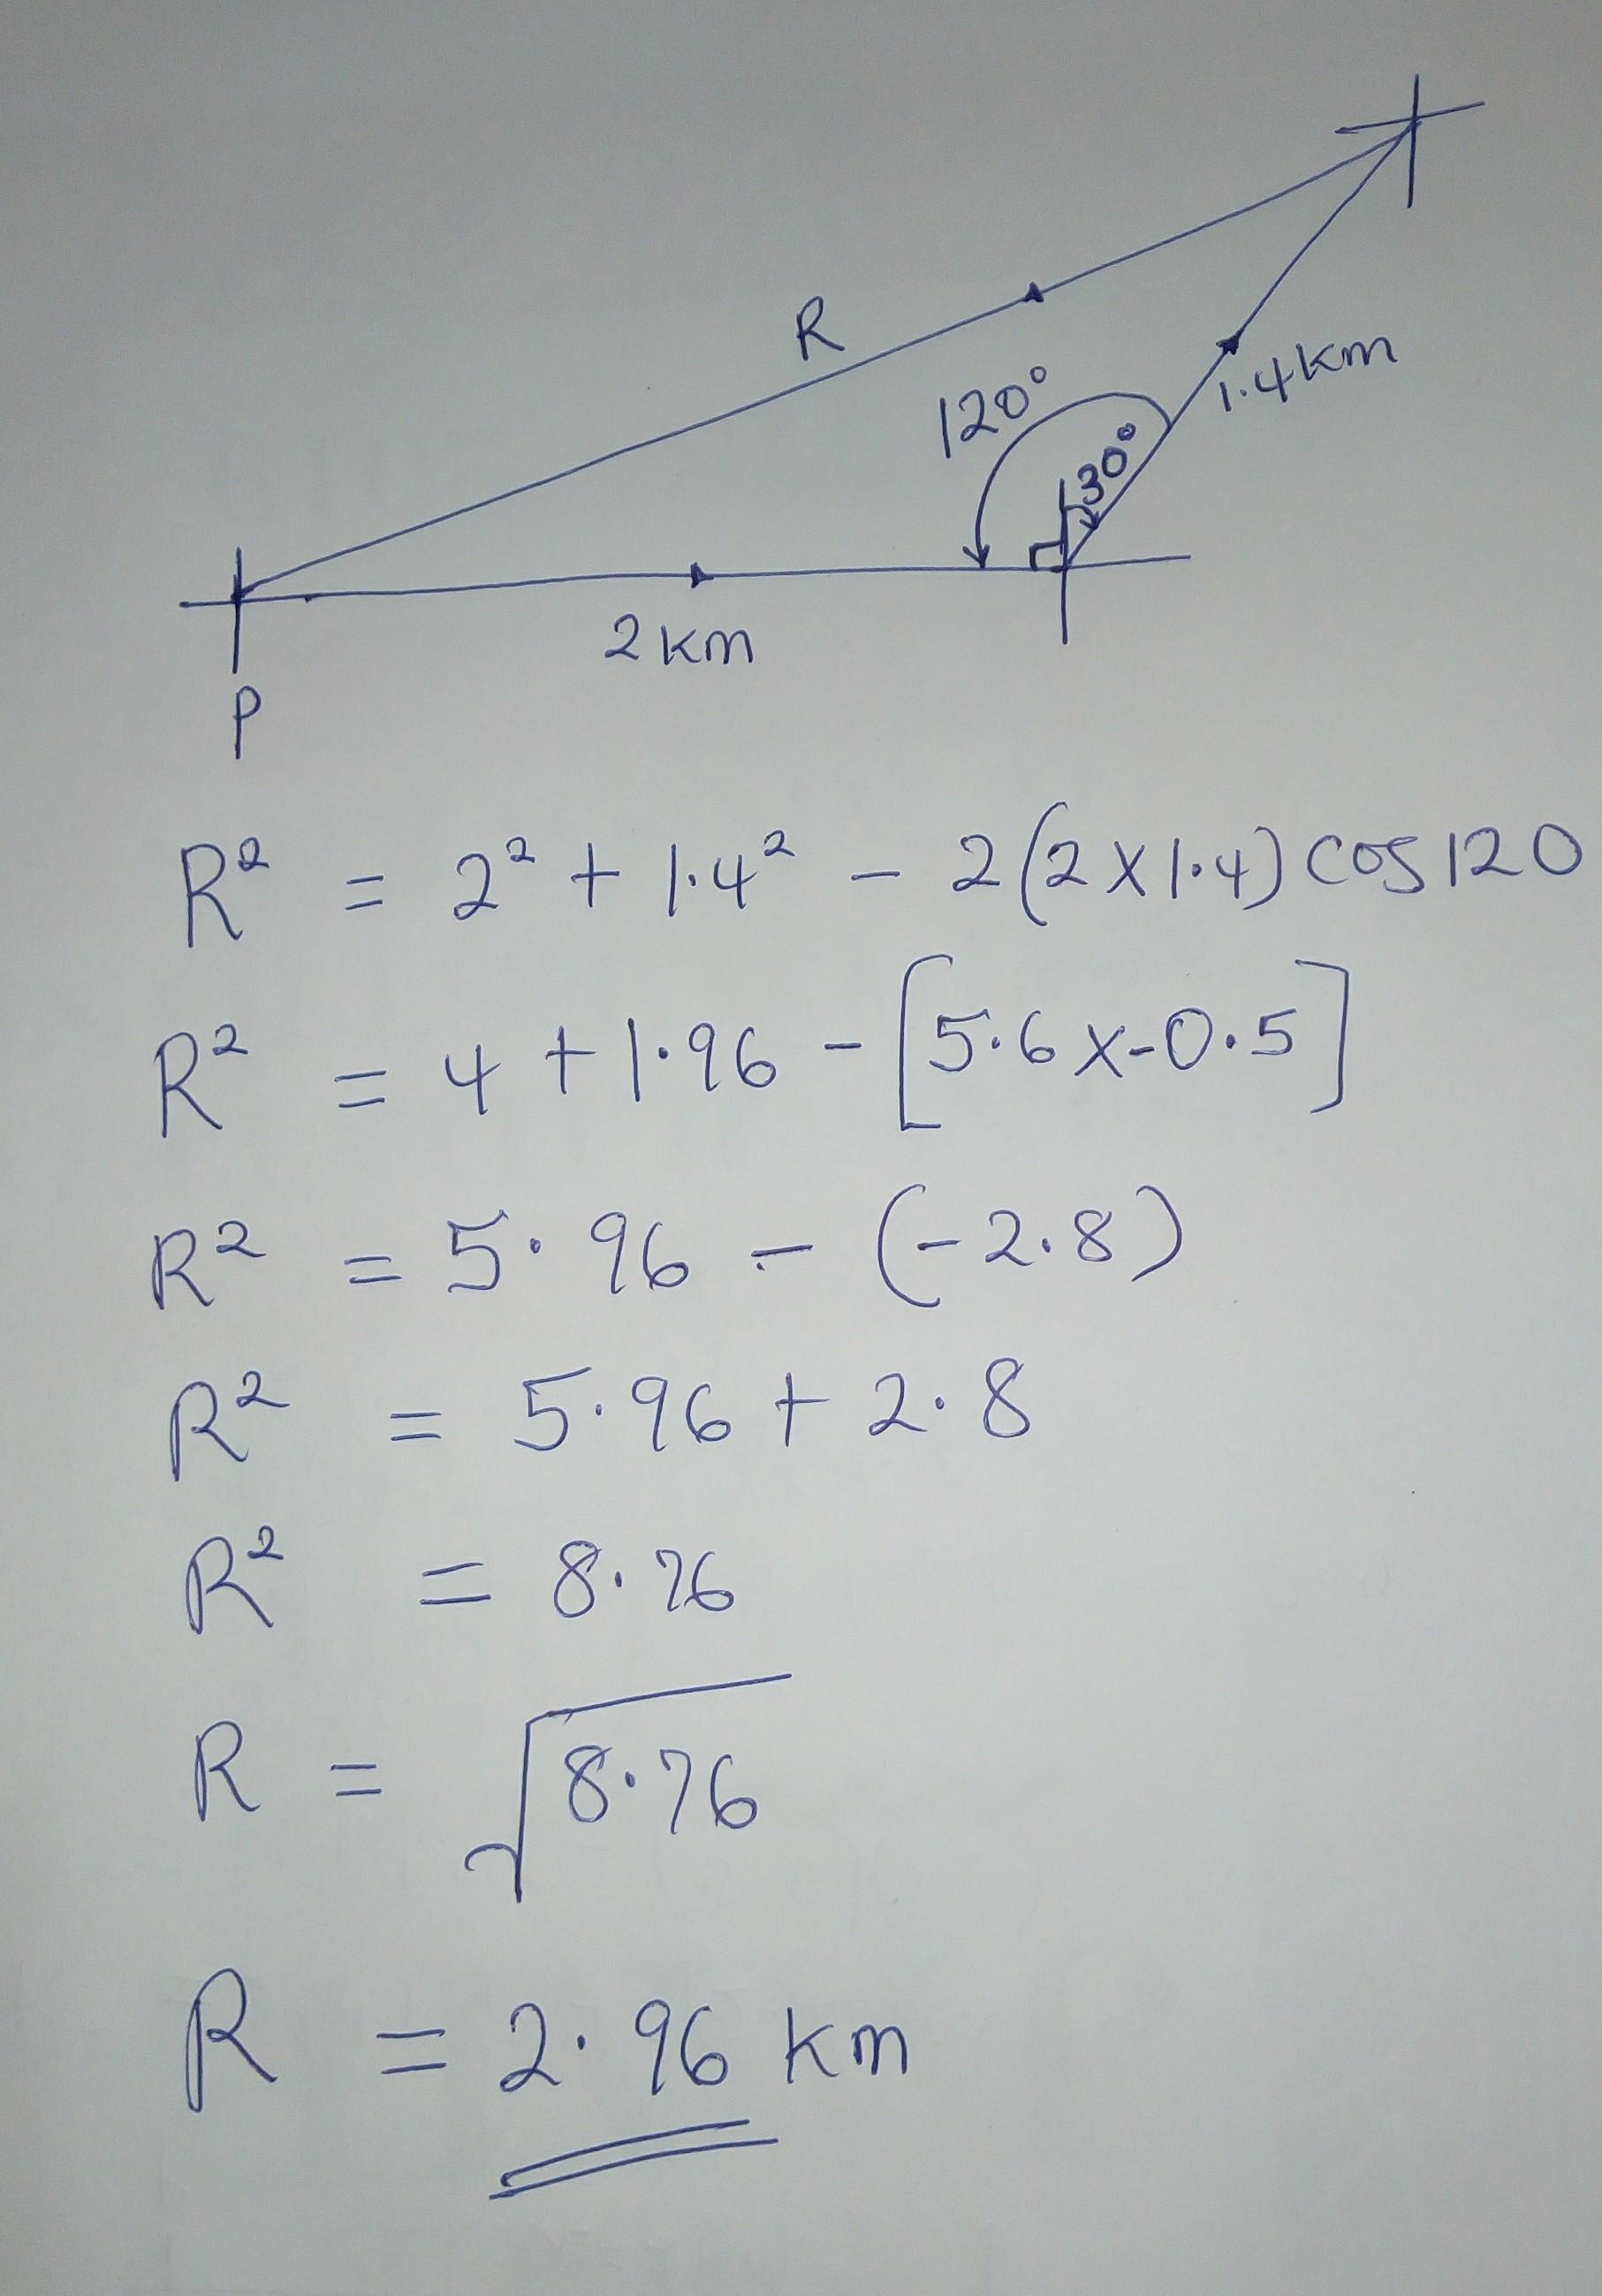 R
120°
30°
1.4km
2km
P
R² = 2² + 1.4² - 2(2 x 1.4) cos 120
R² = 4 + 1.96 - [5.6 x -0.5]
R² = 5.96 - (-2.8)
R² = 5.96 + 2.8
R² = 8.76
R = √8.76
R = 2.96 km